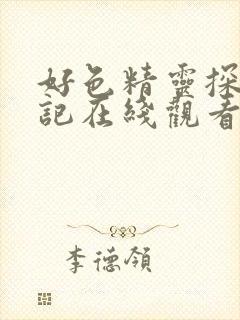 好色精靈探
記在綫觀看
李德領